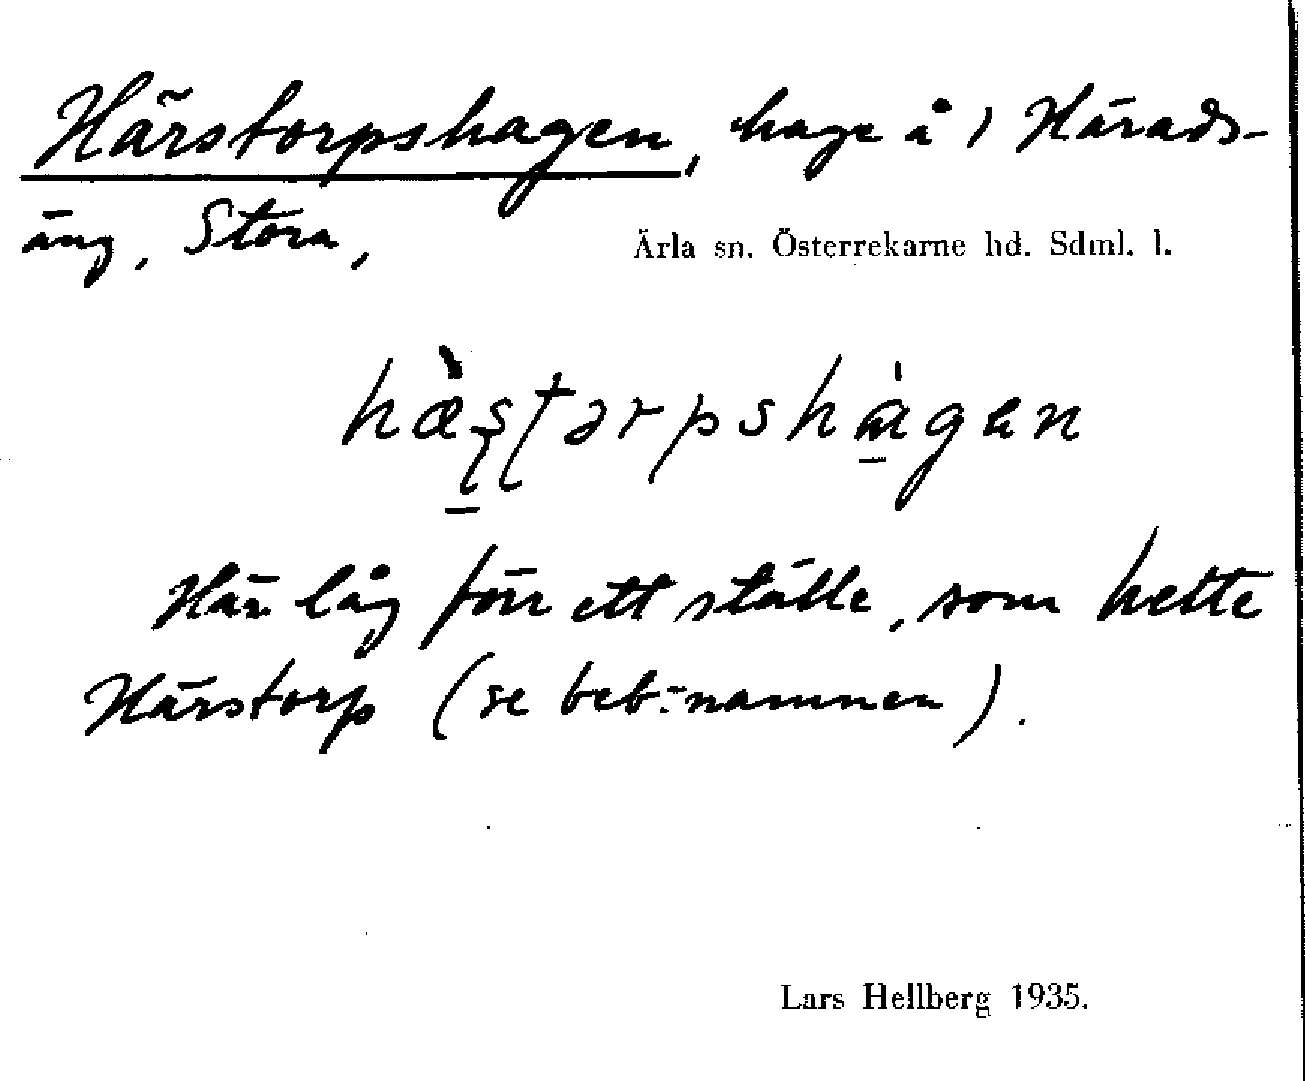 Härstorpshagen, hage å 1 Härads-
äng, Stora,
Ärla sn. Österrekarne hd. Sdml. l.
Här låg förr ett ställe, som hette
Härstorp (se beb:namnen).
Lars Hellberg 1935.